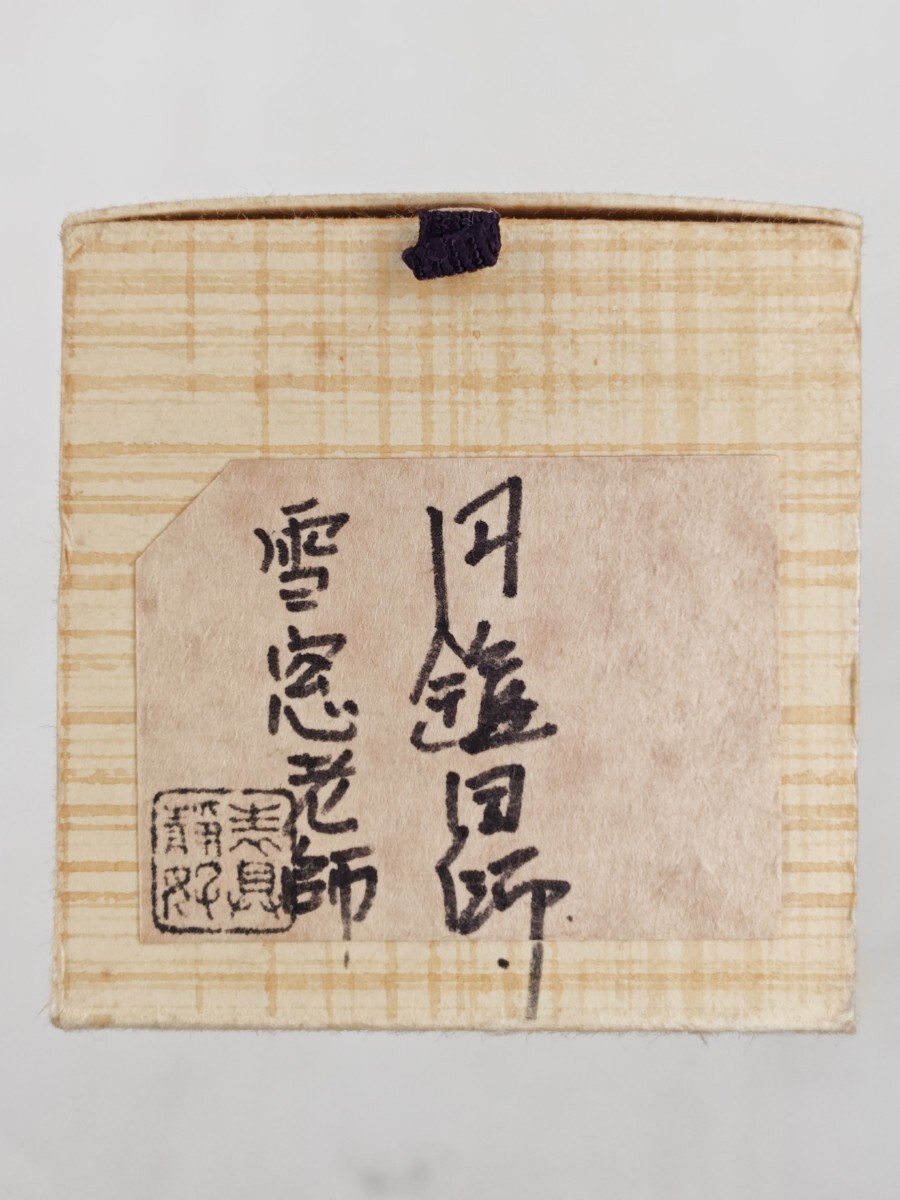 円鑑国師
雪窓老師